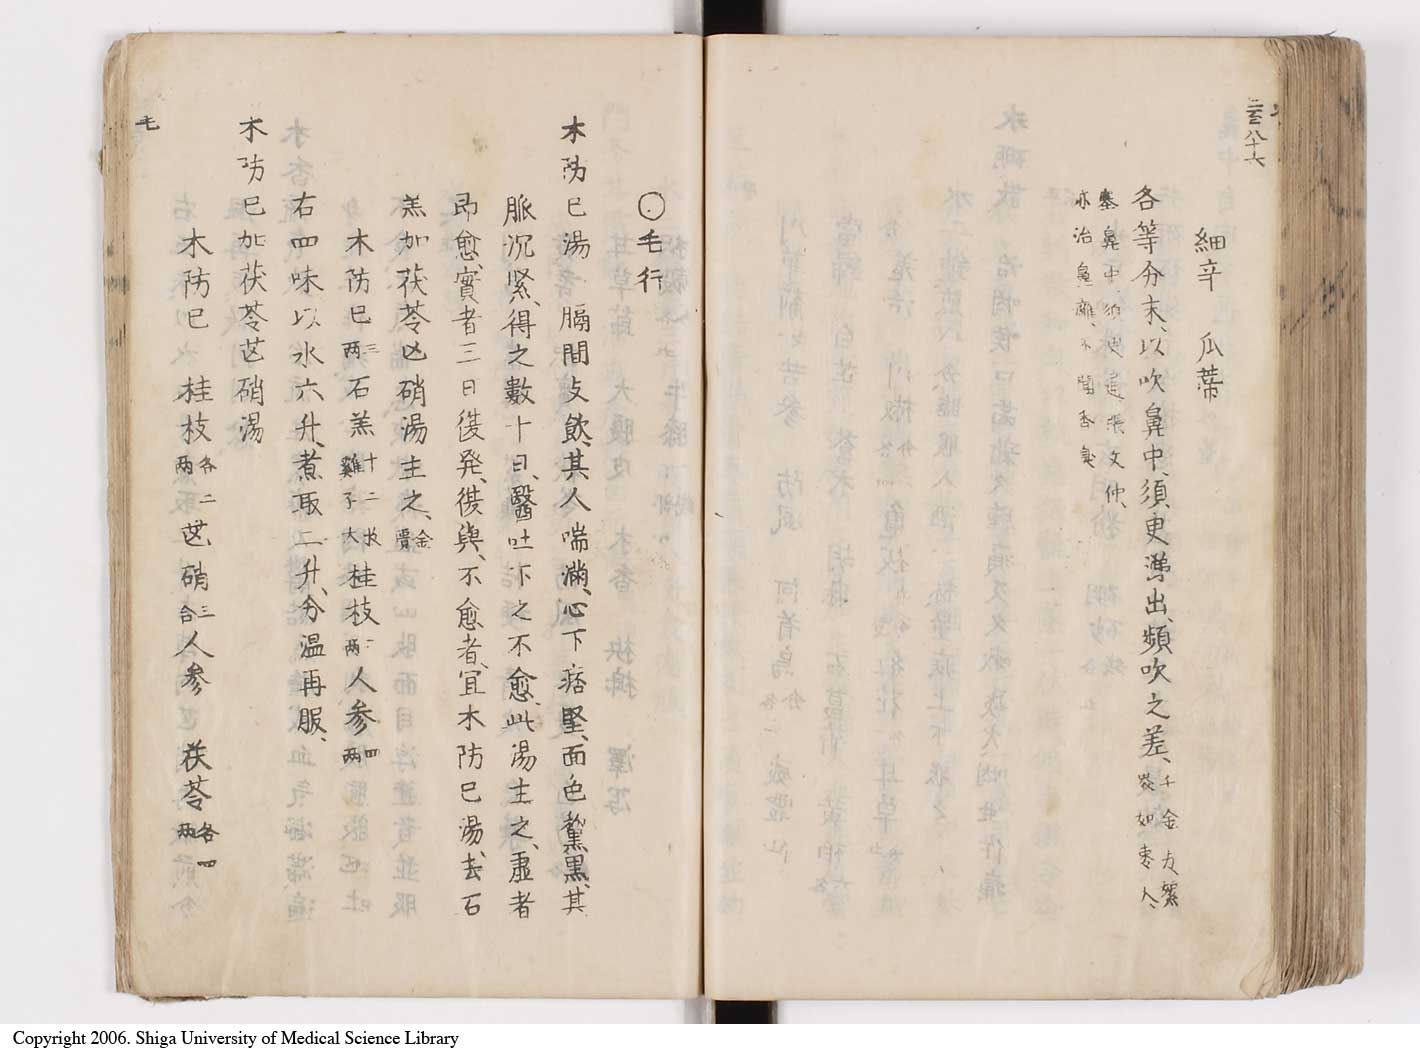 細辛 瓜蒂
各等分末、以吹鼻中、須臾涕出、頻吹之差、千金方綿裹如棗人、
塞鼻中須臾遂張文仲、
亦治鼻齆、不聞香臭
〇毛行
木防已湯 膈間支飲、其人喘滿、心下痞堅、面色黧黑、其
脈沉緊、得之數十日、醫吐下之不愈、此湯主之、虛者
即愈、實者三日復発、復與、不愈者、宜木防已湯去石
羔加茯苓芒硝湯主之、金匱
木防已三両 石羔十二枚雞子大 桂枝二両 人参四両
右四味以水六升、煮取二升、分温再服、
木防已加茯苓芒硝湯
木防已 桂枝各二両 芒硝三合 人参 茯苓各四両
毛
Copyright 2006. Shiga University of Medical Science Library